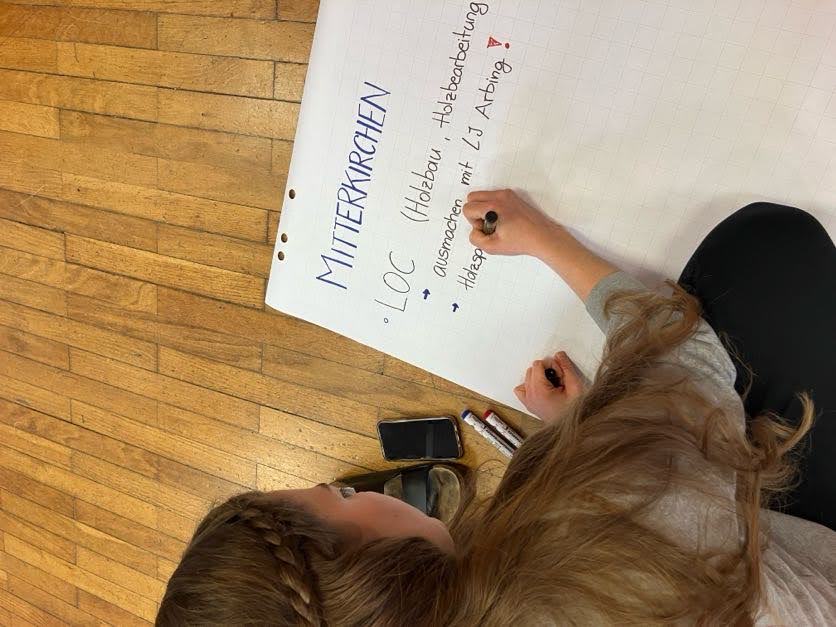 MITTERKIRCHEN
° LOC (Holzbau, Holzbearbeitung
→ ausmachen mit LJ Arbing !
→ Holzsp